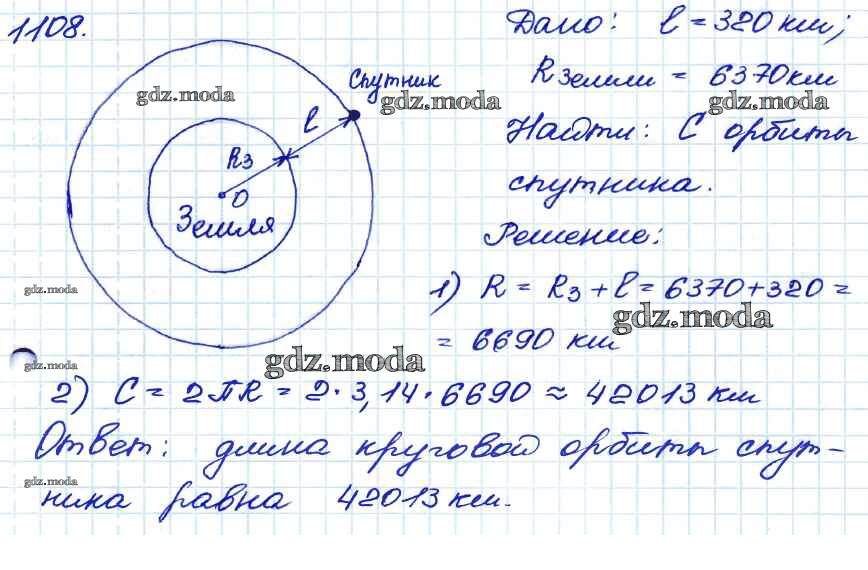 1108.
Дано: l = 320 км;
Rземли = 6370км
Найти: C орбиты
спутника.
Решение:
Спутник
l
Rз
O
Земля
1) R = Rз + l = 6370 + 320 =
= 6690 км
2) C = 2πR = 2·3,14·6690 ≈ 42013 км
Ответ: длина круговой орбиты спут-
ника равна 42013 км.
gdz.moda
gdz.moda
gdz.moda
gdz.moda
gdz.moda
gdz.moda
gdz.moda
gdz.moda